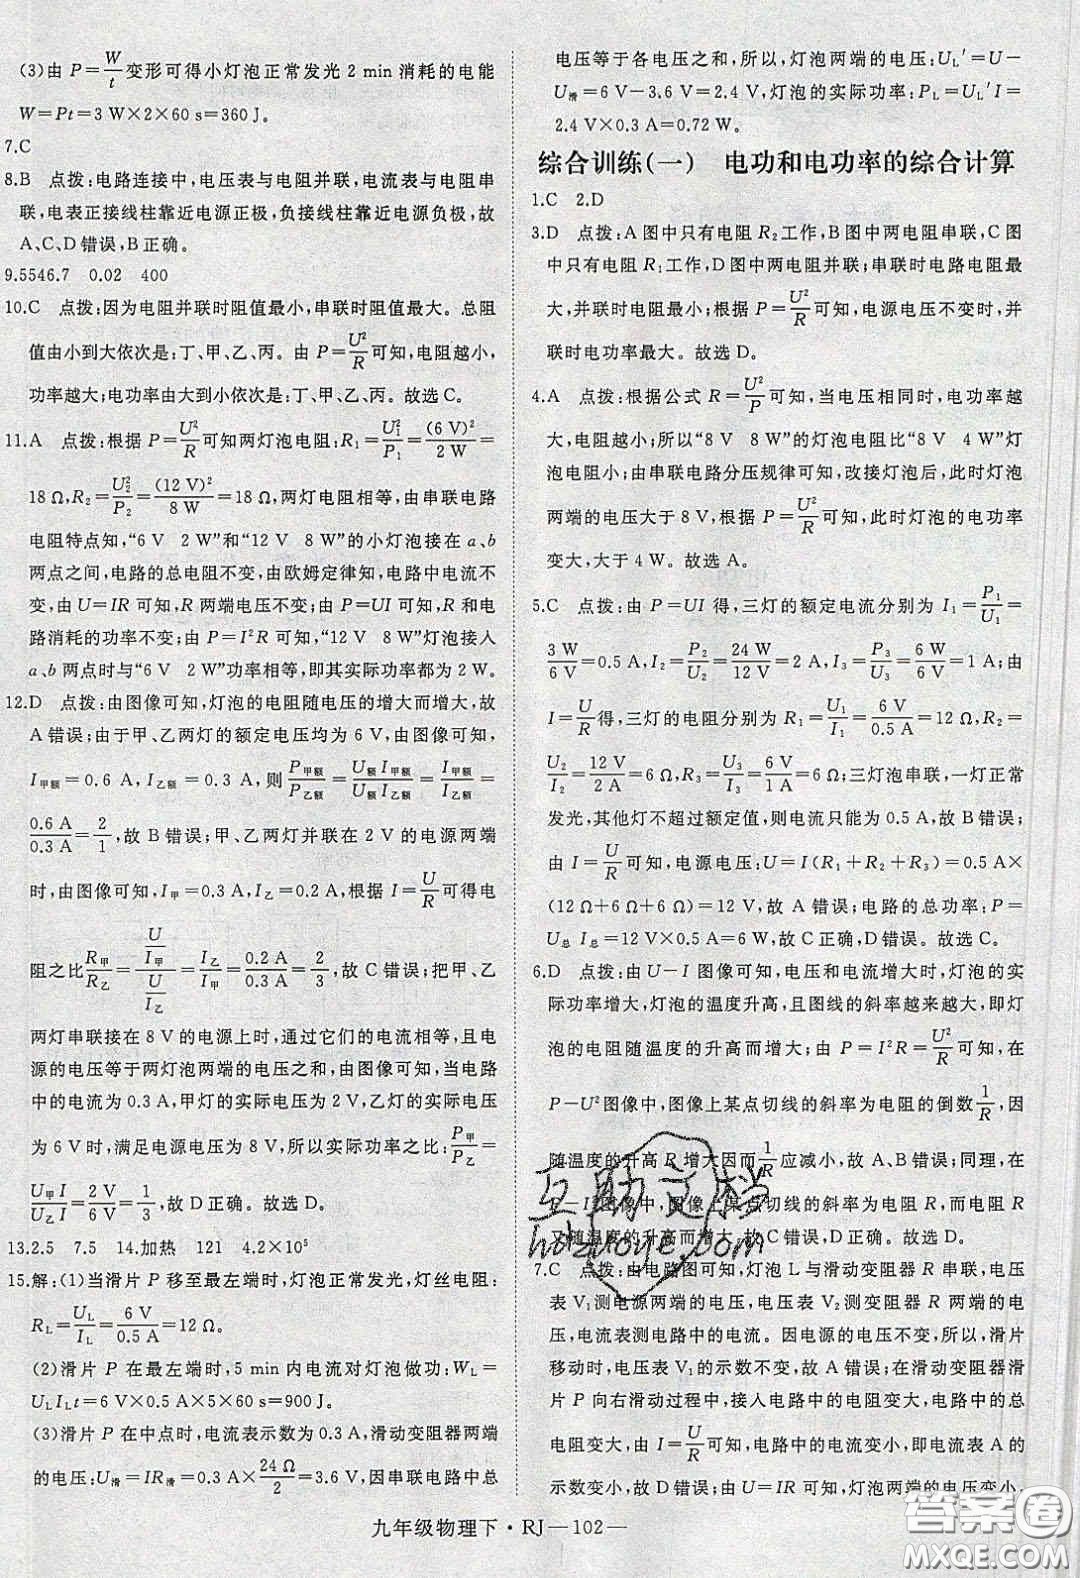 (3)由 P=W/t变形可得小灯泡正常发光 2 min 消耗的电能
W=Pt=3 W×2×60 s=360 J。
7.C
8.B 点拨:电路连接中,电压表与电阻并联,电流表与电阻串
联,电表正接线柱靠近电源正极,负接线柱靠近电源负极,故
A、C、D 错误,B 正确。
9.5546.7 0.02 400
10.C 点拨:因为电阻并联时阻值最小,串联时阻值最大。总阻
值由小到大依次是:丁、甲、乙、丙。由 P=U²/R可知,电阻越小,
功率越大;电功率由大到小依次是:丁、甲、乙、丙。故选 C。
11.A 点拨:根据 P=U²/R可知两灯泡电阻:R₁=U₁²/P₁=(6 V)²/2 W=
18 Ω,R₂=U₂²/P₂=(12 V)²/8 W=18 Ω,两灯电阻相等,由串联电路
电阻特点知,“6 V 2 W”和“12 V 8 W”的小灯泡接在 a、b
两点之间,电路的总电阻不变,由欧姆定律知,电路中电流不
变,由 U=IR 可知,R 两端电压不变;由 P=UI 可知,R 和电
路消耗的功率不变;由 P=I²R 可知,“12 V 8 W”灯泡接入
a、b 两点时与“6 V 2 W”功率相等,即其实际功率都为 2 W。
12.D 点拨:由图像可知,灯泡的电阻随电压的增大而增大,故
A 错误;由于甲、乙两灯的额定电压均为 6 V,由图像可知,
I甲额=0.6 A,I乙额=0.3 A,则 P甲额/P乙额=U额I甲额/U额I乙额=I甲额/I乙额=
0.6 A/0.3 A=2/1,故 B 错误;甲、乙两灯并联在 2 V 的电源两端
时,由图像可知,I甲=0.3 A,I乙=0.2 A,根据 I=U/R可得电
阻之比R甲/R乙=(U/I甲)/(U/I乙)=I乙/I甲=0.2 A/0.3 A=2/3,故 C 错误;把甲、乙
两灯串联接在 8 V 的电源上时,通过它们的电流相等,且电
源的电压等于两灯泡两端的电压之和,由图像可知,当电路
中的电流为 0.3 A 时,甲灯的实际电压为 2 V,乙灯的实际电压
为 6 V 时,满足电源电压为 8 V,所以实际功率之比:P甲/P乙=
U甲I/U乙I=2 V/6 V=1/3,故 D 正确。故选 D。
13.2.5 7.5 14.加热 121 4.2×10⁵
15.解:(1)当滑片 P 移至最左端时,灯泡正常发光,灯丝电阻:
R_L=U_L/I_L=6 V/0.5 A=12 Ω。
(2)滑片 P 在最左端时,5 min 内电流对灯泡做功:W_L=
U_LI_Lt=6 V×0.5 A×5×60 s=900 J。
(3)滑片 P 在中点时,电流表示数为 0.3 A,滑动变阻器两端
的电压:U滑=IR滑=0.3 A×24 Ω/2=3.6 V,因串联电路中总
电压等于各电压之和,所以,灯泡两端的电压:U_L′=U-
U滑=6 V-3.6 V=2.4 V,灯泡的实际功率:P_L=U_L′I=
2.4 V×0.3 A=0.72 W。
综合训练(一) 电功和电功率的综合计算
1.C 2.D
3.D 点拨:A 图中只有电阻 R₂工作,B 图中两电阻串联,C 图
中只有电阻 R₁工作,D 图中两电阻并联;串联时电路电阻最
大,并联时电阻最小;根据 P=U²/R可知,电源电压不变时,并
联时电功率最大。故选 D。
4.A 点拨:根据公式 R=U²/P可知,当电压相同时,电功率越
大,电阻越小;所以“8 V 8 W”的灯泡电阻比“8 V 4 W”灯
泡电阻小;由串联电路分压规律可知,改接灯泡后,此时灯泡
两端的电压大于 8 V,根据 P=U²/R可知,此时灯泡的电功率
变大,大于 4 W。故选 A。
5.C 点拨:由 P=UI 得,三灯的额定电流分别为 I₁=P₁/U₁=
3 W/6 V=0.5 A,I₂=P₂/U₂=24 W/12 V=2 A,I₃=P₃/U₃=6 W/6 V=1 A;由
I=U/R得,三灯的电阻分别为 R₁=U₁/I₁=6 V/0.5 A=12 Ω,R₂=
U₂/I₂=12 V/2 A=6 Ω,R₃=U₃/I₃=6 V/1 A=6 Ω;三灯泡串联,一灯正常
发光,其他灯不超过额定值,则电流只能为 0.5 A,故 B 错误;
由 I=U/R可知,电源电压:U=I(R₁+R₂+R₃)=0.5 A×
(12 Ω+6 Ω+6 Ω)=12 V,故 A 错误;电路的总功率:P=
U总I总=12 V×0.5 A=6 W,故 C 正确,D 错误。故选 C。
6.D 点拨:由 U-I 图像可知,电压和电流增大时,灯泡的实
际功率增大,灯泡的温度升高,且图线的斜率越来越大,即灯
泡的电阻随温度的升高而增大;由 P=I²R=U²/R可知,在
P-U²图像中,图像上某点切线的斜率为电阻的倒数1/R,因
随温度的升高 R 增大因而1/R应减小,故 A、B 错误;同理,在
图像中,图像上某点切线的斜率为电阻 R,而电阻 R
又随温度的升高而增大,故 C 错误,D 正确。故选 D。
7.C 点拨:由电路图可知,灯泡 L 与滑动变阻器 R 串联,电压
表 V₁测电源两端的电压,电压表 V₂测变阻器 R 两端的电
压,电流表测电路中的电流。因电源的电压不变,所以,滑片
移动时,电压表 V₁的示数不变,故 A 错误;在滑动变阻器滑
片 P 向右滑动过程中,接入电路中的电阻变大,电路中的总
电阻变大,由 I=U/R可知,电路中的电流变小,即电流表 A 的
示数变小,故 B 错误;由 U=IR 可知,灯泡两端的电压变小,
九年级物理下·RJ—102—
互助文档
hdzuoye.com
答案圈
MXQE.COM